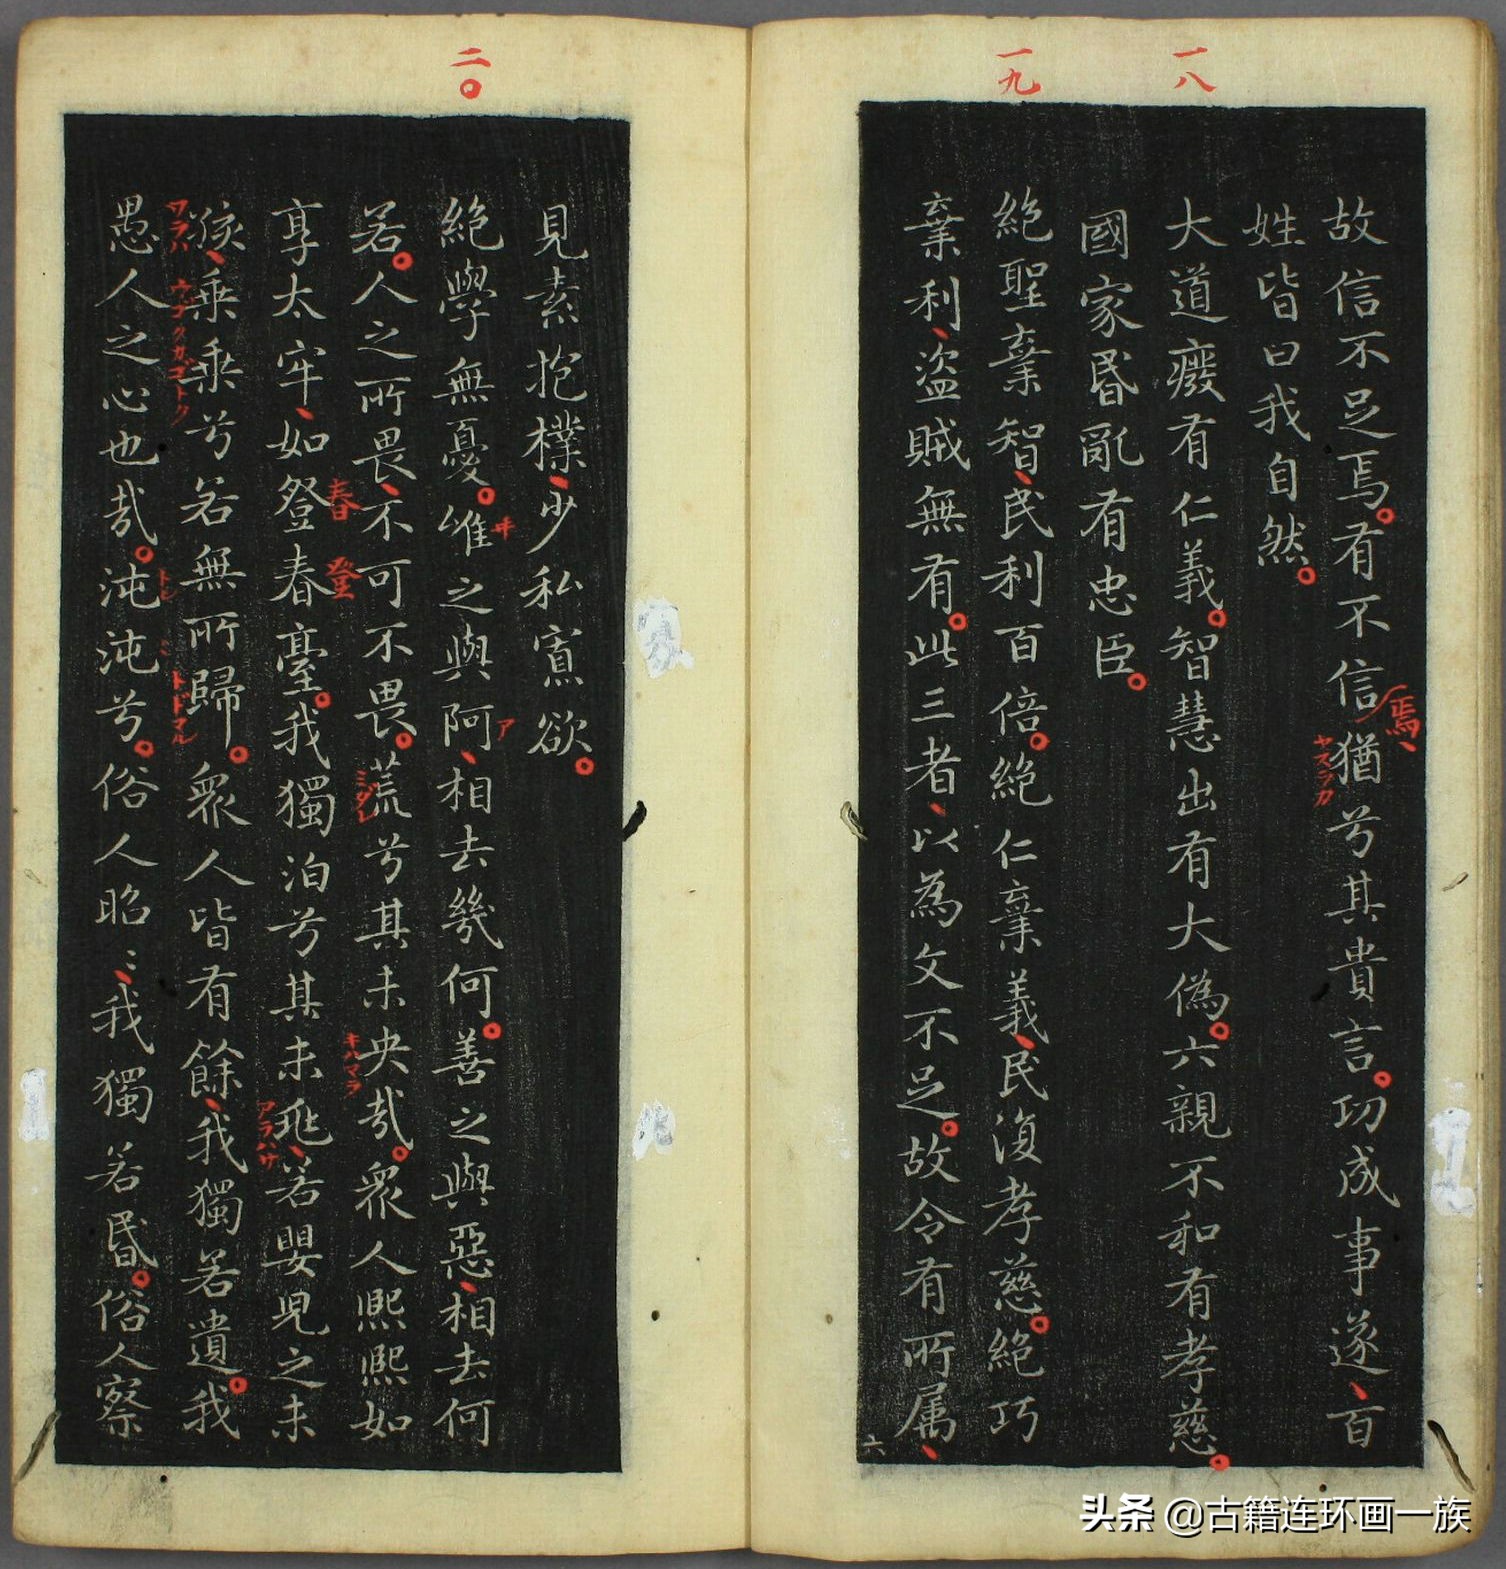 一八
一九
故信不足焉。有不信焉、猶兮其貴言。功成事遂、百
ヤスラカ
姓皆曰我自然。
大道癈有仁義。智慧出有大偽。六親不和有孝慈。
國家昏亂有忠臣。
絕聖棄智、民利百倍。絕仁棄義、民復孝慈。絕巧
棄利、盜賊無有。此三者、以為文不足。故令有所属、
六
二〇
見素抱樸、少私寡欲。
絕學無憂。唯之與阿、相去幾何。善之與惡、相去何
ヰ
ア
若。人之所畏、不可不畏。荒兮其未央哉。衆人熙熙如
ミダレ
キハマラ
享太牢、如登春臺。我獨泊兮其未兆、若嬰児之未
春
登
アラハサ
孩、乗乗兮若無所歸。衆人皆有餘、我獨若遺。我
ワラハ
ウゴクガゴトク
トドマル
愚人之心也哉。沌沌兮。俗人昭〻、我獨若昏。俗人察
头条 @古籍连环画一族